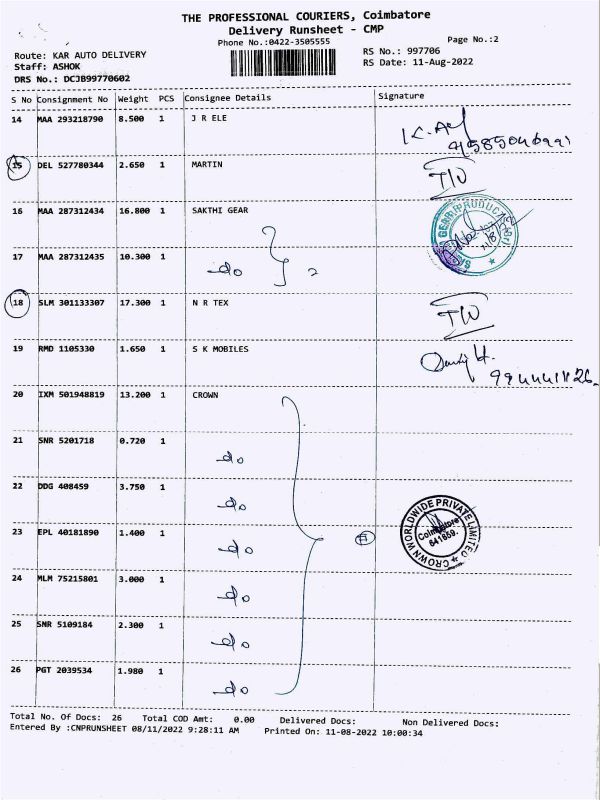 THE PROFESSIONAL COURIERS, Coimbatore
Delivery Runsheet - CMP
Phone No.:0422-3505555
Page No.:2
Route: KAR AUTO DELIVERY
RS No.: 997706
Staff: ASHOK
RS Date: 11-Aug-2022
DRS No.: DCJB99770602
S No Consignment No Weight PCS Consignee Details Signature
14 MAA 293218790 8.500 1 J R ELE
15 DEL 527780344 2.650 1 MARTIN
16 MAA 287312434 16.800 1 SAKTHI GEAR
17 MAA 287312435 10.300 1 do 2
18 SLM 301133307 17.300 1 N R TEX
19 RMD 1105330 1.650 1 S K MOBILES
20 IXM 501948819 13.200 1 CROWN
21 SNR 5201718 0.720 1 do
22 DDG 408459 3.750 1 do
23 EPL 40181890 1.400 1 do
CROWN WORLDWIDE PRIVATE LIMITED
Coimbatore
641659.
24 MLM 75215801 3.000 1 do
25 SNR 5109184 2.300 1 do
26 PGT 2039534 1.980 1 do
Total No. Of Docs: 26 Total COD Amt: 0.00 Delivered Docs: Non Delivered Docs:
Entered By :CNPRUNSHEET 08/11/2022 9:28:11 AM Printed On: 11-08-2022 10:00:34